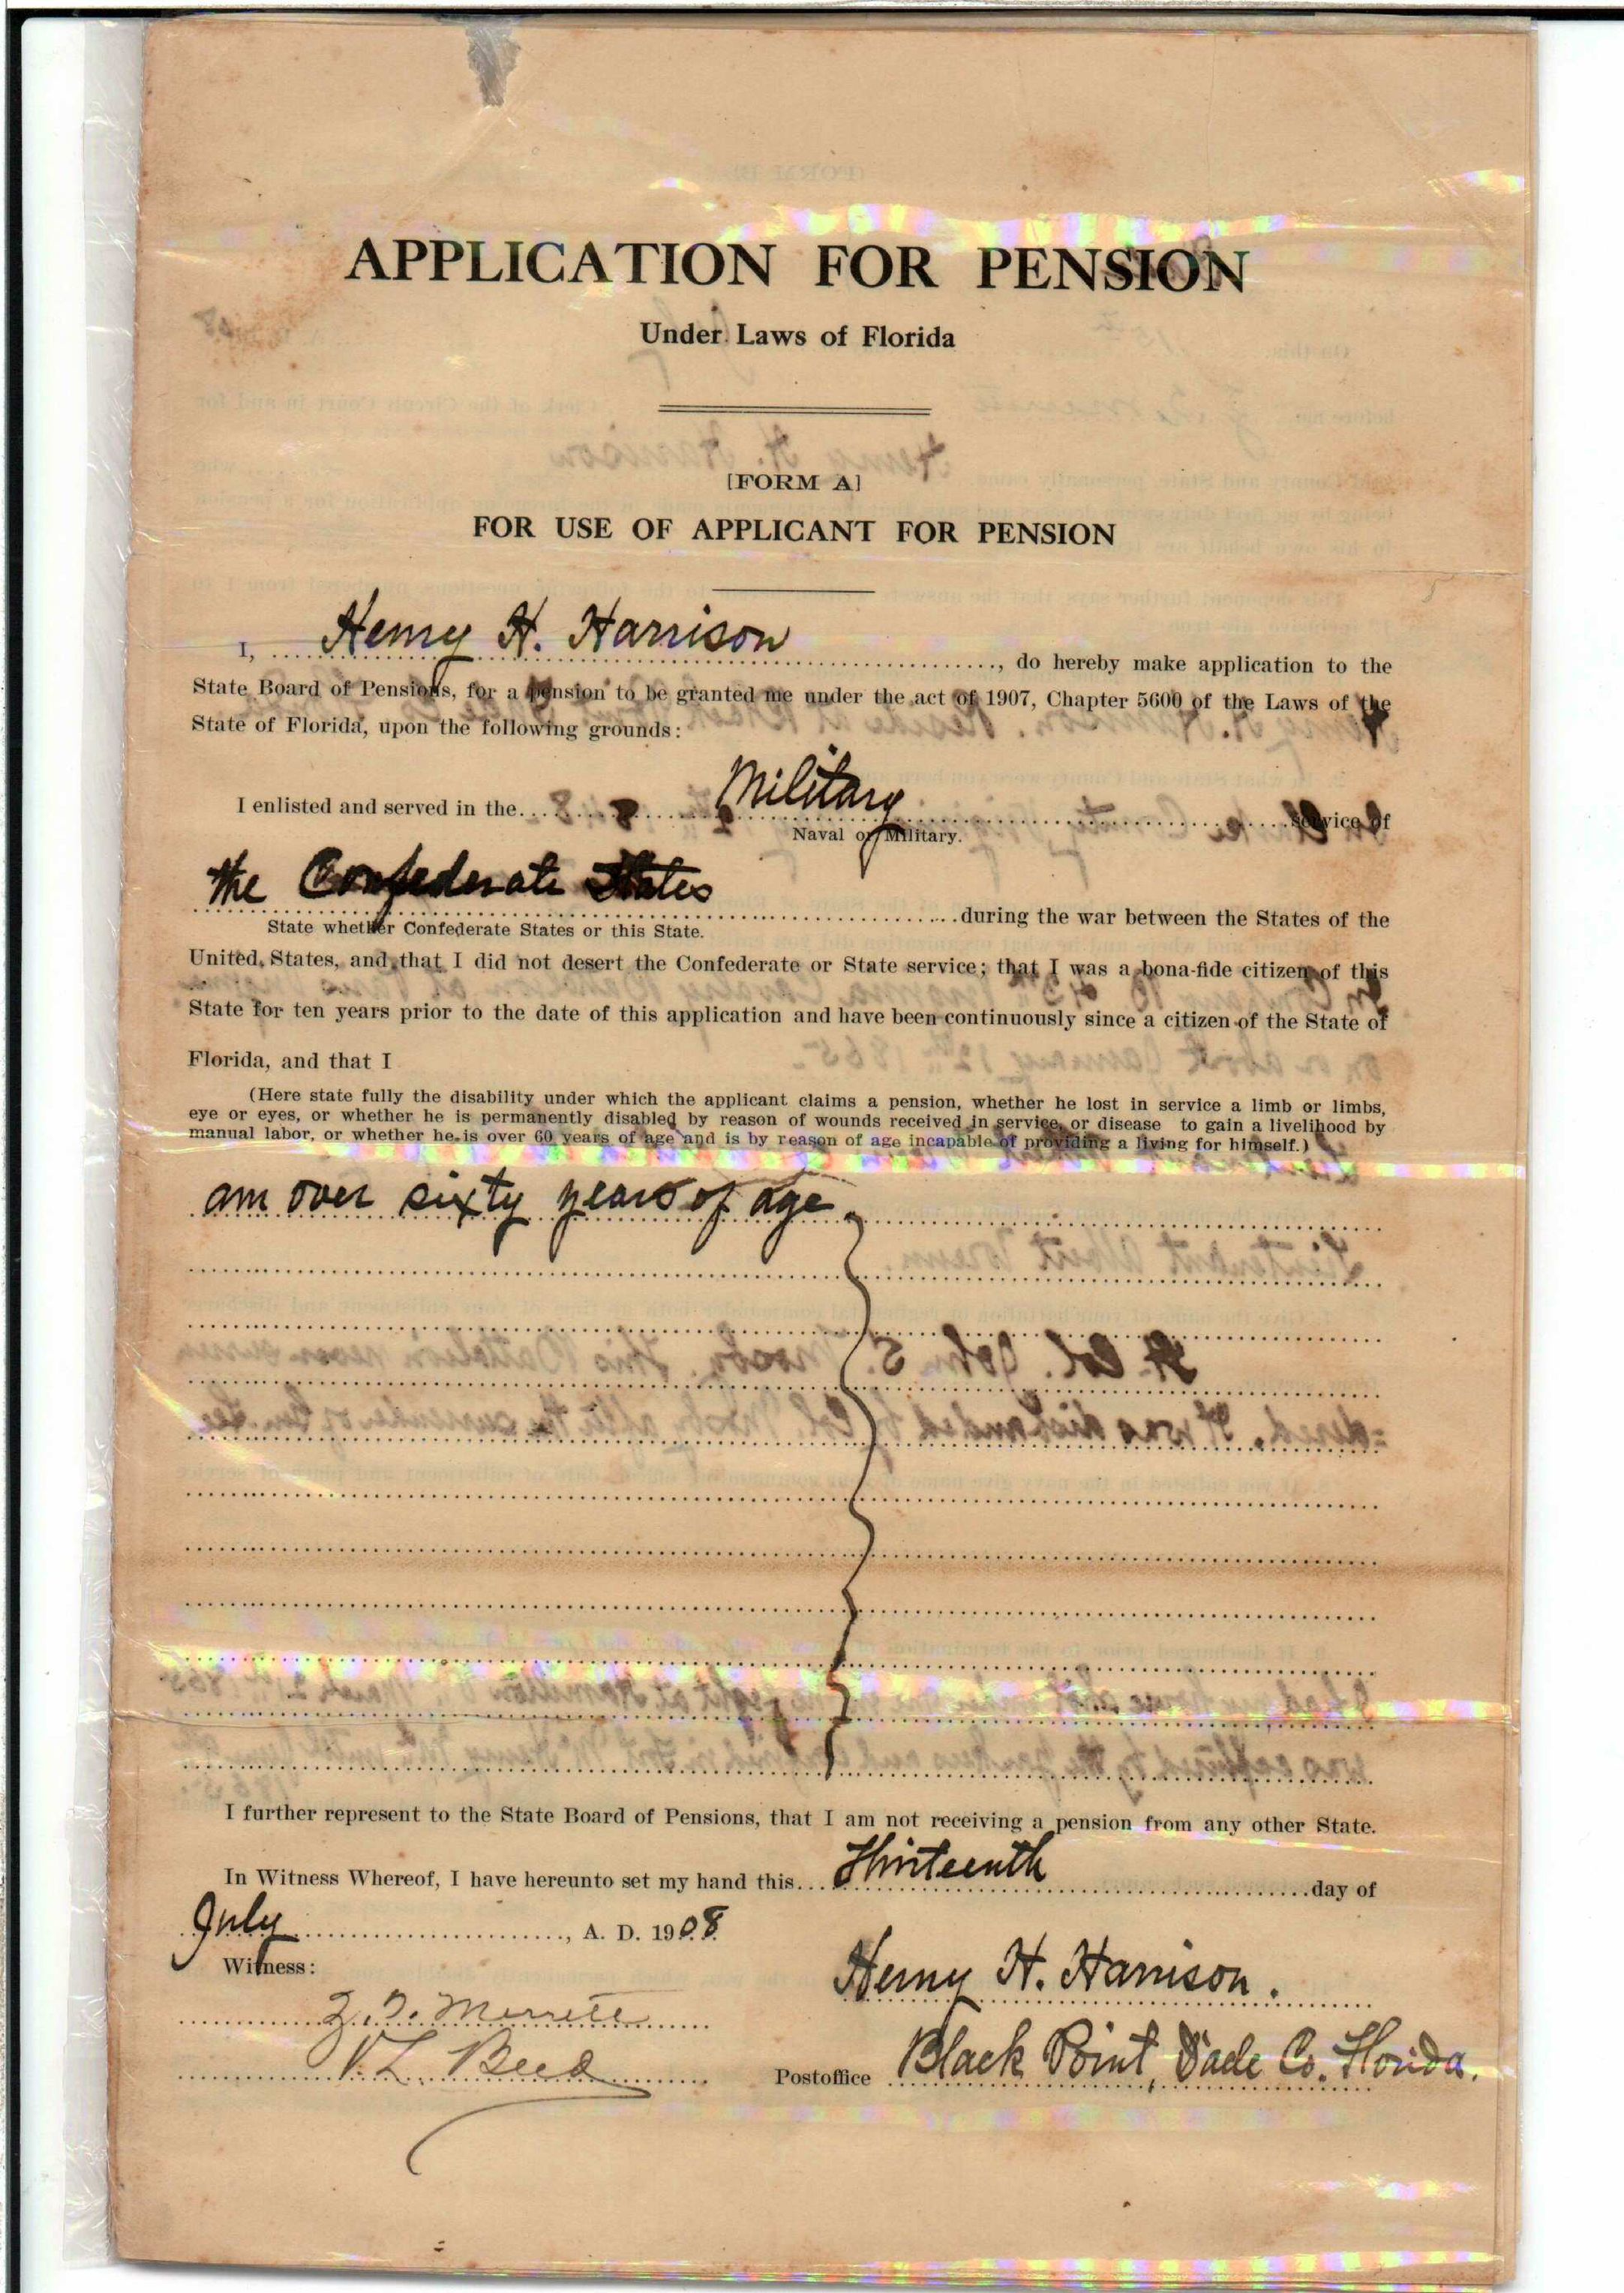 APPLICATION FOR PENSION
Under Laws of Florida
[FORM A]
FOR USE OF APPLICANT FOR PENSION
I, Henry H. Harrison, do hereby make application to the
State Board of Pensions, for a pension to be granted me under the act of 1907, Chapter 5600 of the Laws of the
State of Florida, upon the following grounds:
I enlisted and served in the Military service of
Naval or Military.
the Confederate States during the war between the States of the
State whether Confederate States or this State.
United States, and that I did not desert the Confederate or State service; that I was a bona-fide citizen of this
State for ten years prior to the date of this application and have been continuously since a citizen of the State of
Florida, and that I
(Here state fully the disability under which the applicant claims a pension, whether he lost in service a limb or limbs,
eye or eyes, or whether he is permanently disabled by reason of wounds received in service, or disease to gain a livelihood by
manual labor, or whether he is over 60 years of age and is by reason of age incapable of providing a living for himself.)
am over sixty years of age.
I further represent to the State Board of Pensions, that I am not receiving a pension from any other State.
In Witness Whereof, I have hereunto set my hand this Thirteenth day of
July, A. D. 1908
Witness:
Henry H. Harrison.
Z. T. Merritt
V. L. Beed
Postoffice Black Point, Dade Co. Florida.